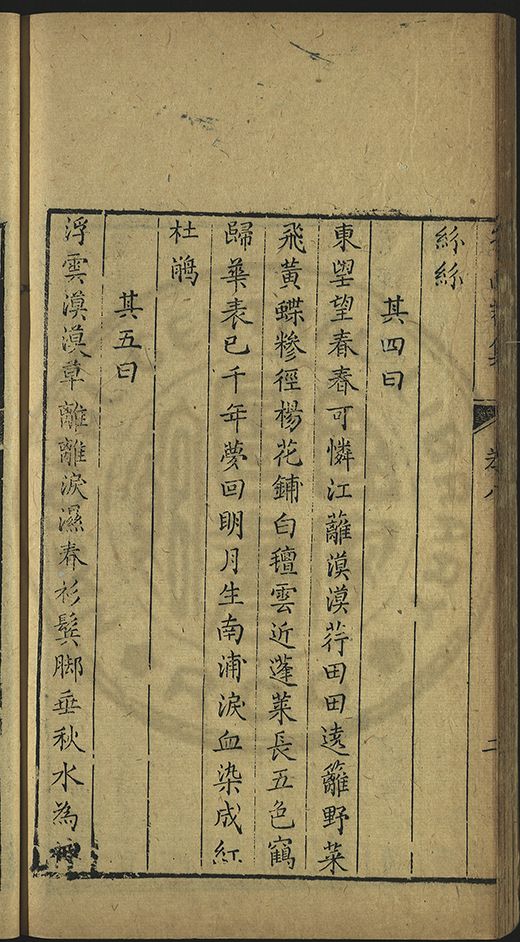 絲絲
其四曰
東朢望春春可憐江蘺漠漠荇田田遶籬野菜
飛黃蝶糝徑楊花鋪白氊雲近蓬萊長五色鶴
歸華表已千年夢回明月生南浦淚血染成紅
杜鵑
其五曰
浮雲漠漠草離離淚濕春衫鬢脚垂秋水為神